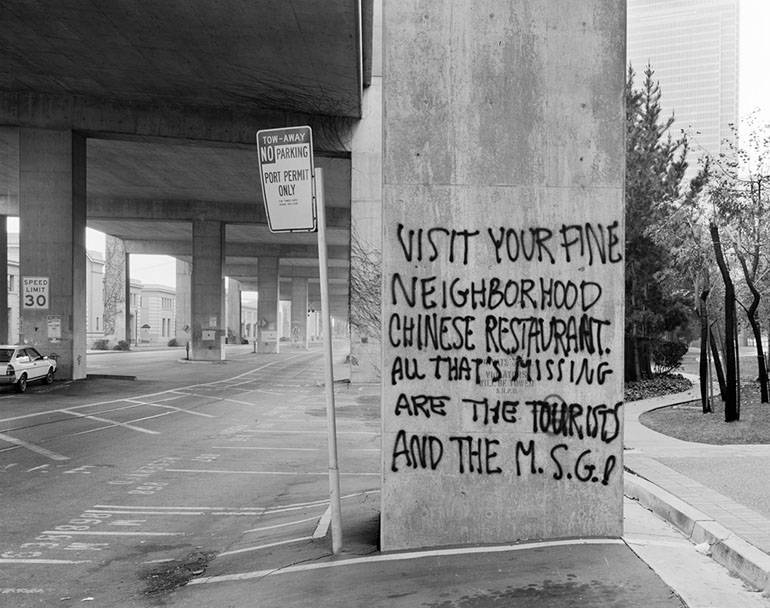 TOW-AWAY
NO PARKING
PORT PERMIT
ONLY
SPEED
LIMIT
30
VISIT YOUR FINE
NEIGHBORHOOD
CHINESE RESTAURANT.
ALL THAT'S MISSING
ARE THE TOURISTS
AND THE M.S.G.!